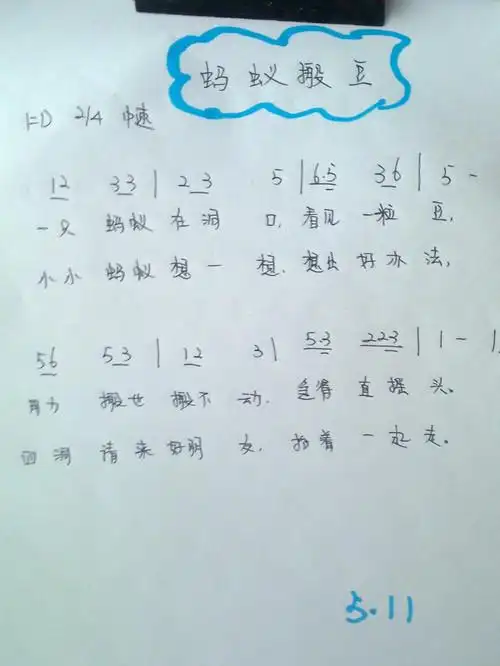 蚂蚁搬豆
1=D 2/4 中速
12 33 | 23 5 | 6·5 36 | 5 -
一只 蚂蚁在洞 口,看见一粒 豆,
小小 蚂蚁想一 想,想出好办 法,
56 53 | 12 3 | 5·3 223 | 1 - |
用力 搬也搬不 动,急得直摇 头。
回洞 请来好朋 友,抬着一起走。
5.11